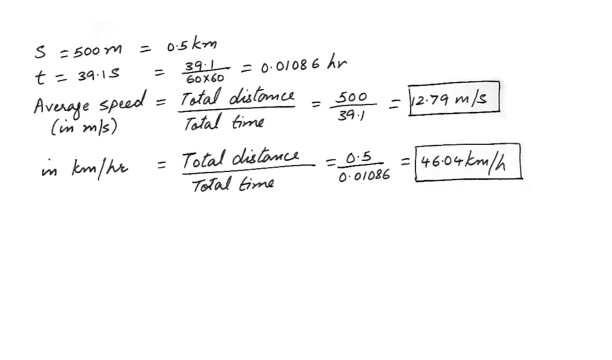 S = 500m = 0.5 km
t = 39.1s = 39.1/60×60 = 0.01086 hr
Average speed = Total distance/Total time = 500/39.1 = 12.79 m/s
(in m/s)
in km/hr = Total distance/Total time = 0.5/0.01086 = 46.04 km/h